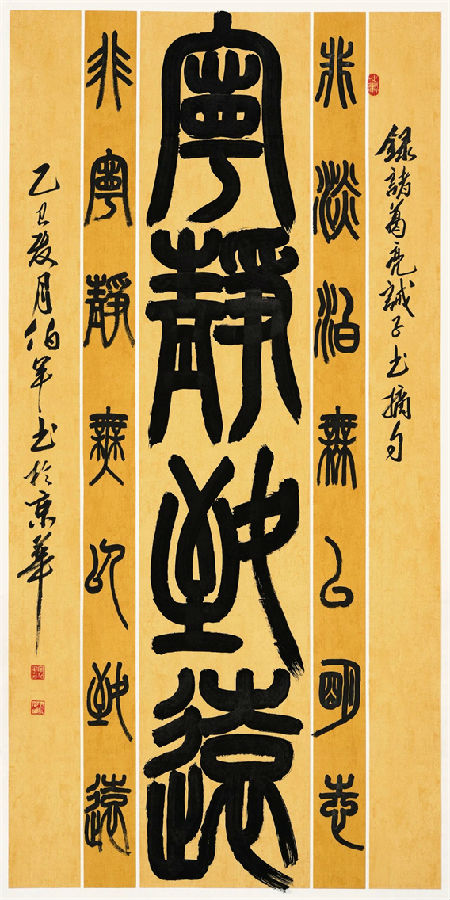 錄諸葛亮誡子書摘句
非淡泊無以明志
寧靜致遠
非寧靜無以致遠
乙巳夏月伯軍书於京華